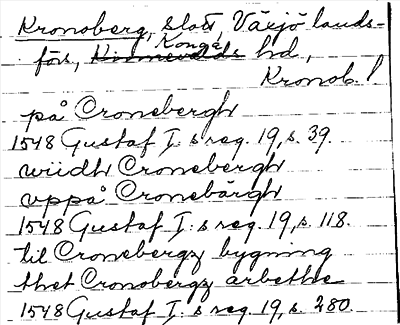 Kronoberg, Slott, Växjö lands-
förs, Kinnevalds Konga hd,
Kronob. l.
på Cronebergh
1548 Gustaf I:s reg. 19, s. 39.
wiidh Cronebergh
vppå Cronebärgh
1548 Gustaf I:s reg. 19, s. 118.
til Cronebergz bygning
thet Cronobergz arbethe
1548 Gustaf I:s reg. 19, s. 280.